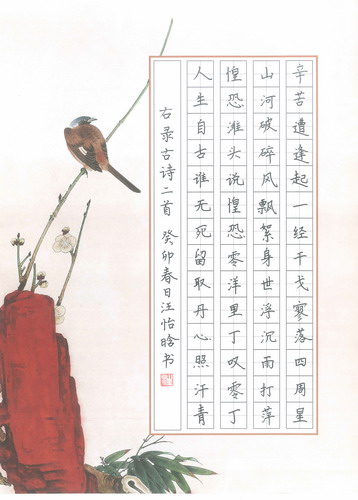 辛苦遭逢起一经干戈寥落四周星
山河破碎风飘絮身世浮沉雨打萍
惶恐滩头说惶恐零洋里丁叹零丁
人生自古谁无死留取丹心照汗青
右录古诗二首 癸卯春日汪怡晗书